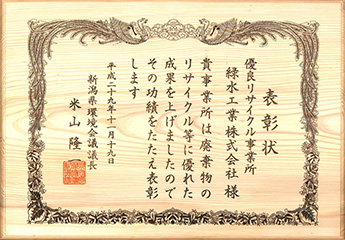 表彰状
優良リサイクル事業所
緑水工業株式会社 様
貴事業所は廃棄物の
リサイクル等に優れた
成果を上げましたので
その功績をたたえ表彰
します
平成二十九年十一月十九日
新潟県環境会議議長
米山隆一